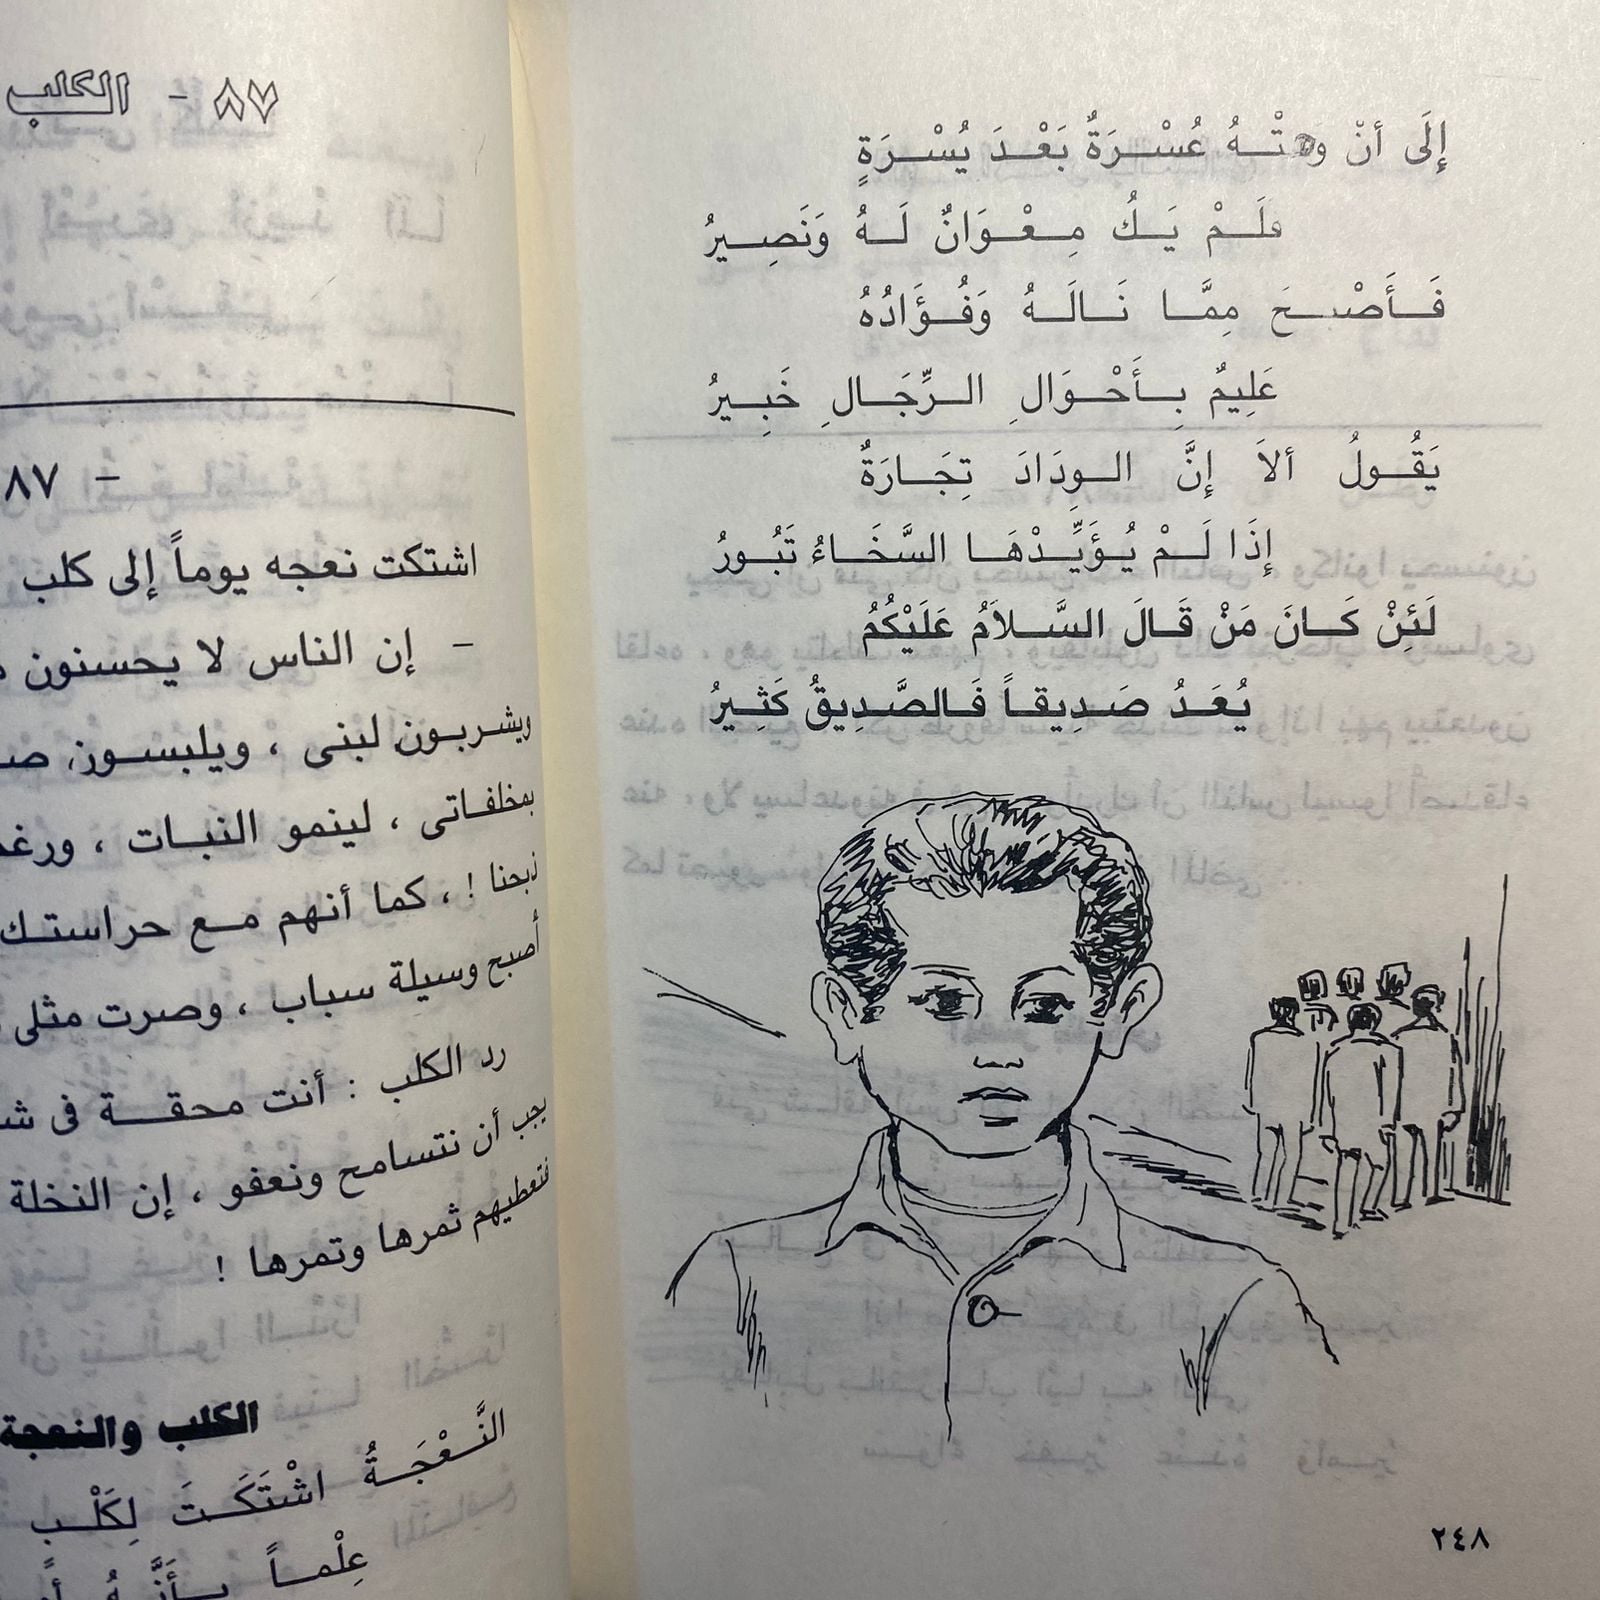 إِلَى أنْ عُسْرَةٌ بَعْدَ يُسْرَةٍ
فلَمْ يَكُ مِعْوَانٌ لَهُ وَنَصِيرُ
فَأَصْبَحَ مِمَّا نَالَهُ وَفُؤَادُهُ
عَلِيمٌ بِأَحْوَالِ الرِّجَالِ خَبِيرُ
يَقُولُ ألاَ إِنَّ الوِدَادَ تِجَارَةٌ
إِذَا لَمْ يُؤَيِّدْهَا السَّخَاءُ تَبُورُ
لَئِنْ كَانَ مَنْ قَالَ السَّلاَمُ عَلَيْكُمُ
يُعَدُ صَدِيقاً فَالصَّدِيقُ كَثِيرُ
٢٤٨
٨٧ - الكلب
- ٨٧
اشتكت نعجه يوماً إلى كلب
- إن الناس لا يحسنون
ويشربون لبنى ، ويلبسون
بمخلفاتى ، لينمو النبات ،
ذبحنا ! ، كما أنهم مع حراستك
أصبح وسيلة سباب ، وصرت مثلى
رد الكلب : أنت محقة فى
يجب أن نتسامح ونعفو ، إن النخلة
فتعطيهم ثمرها وتمرها !
الكلب والنعجة
النَّعْجَةُ اشْتَكَتَ لِكَلْبِ
عِلْماً بِأَنَّهُ